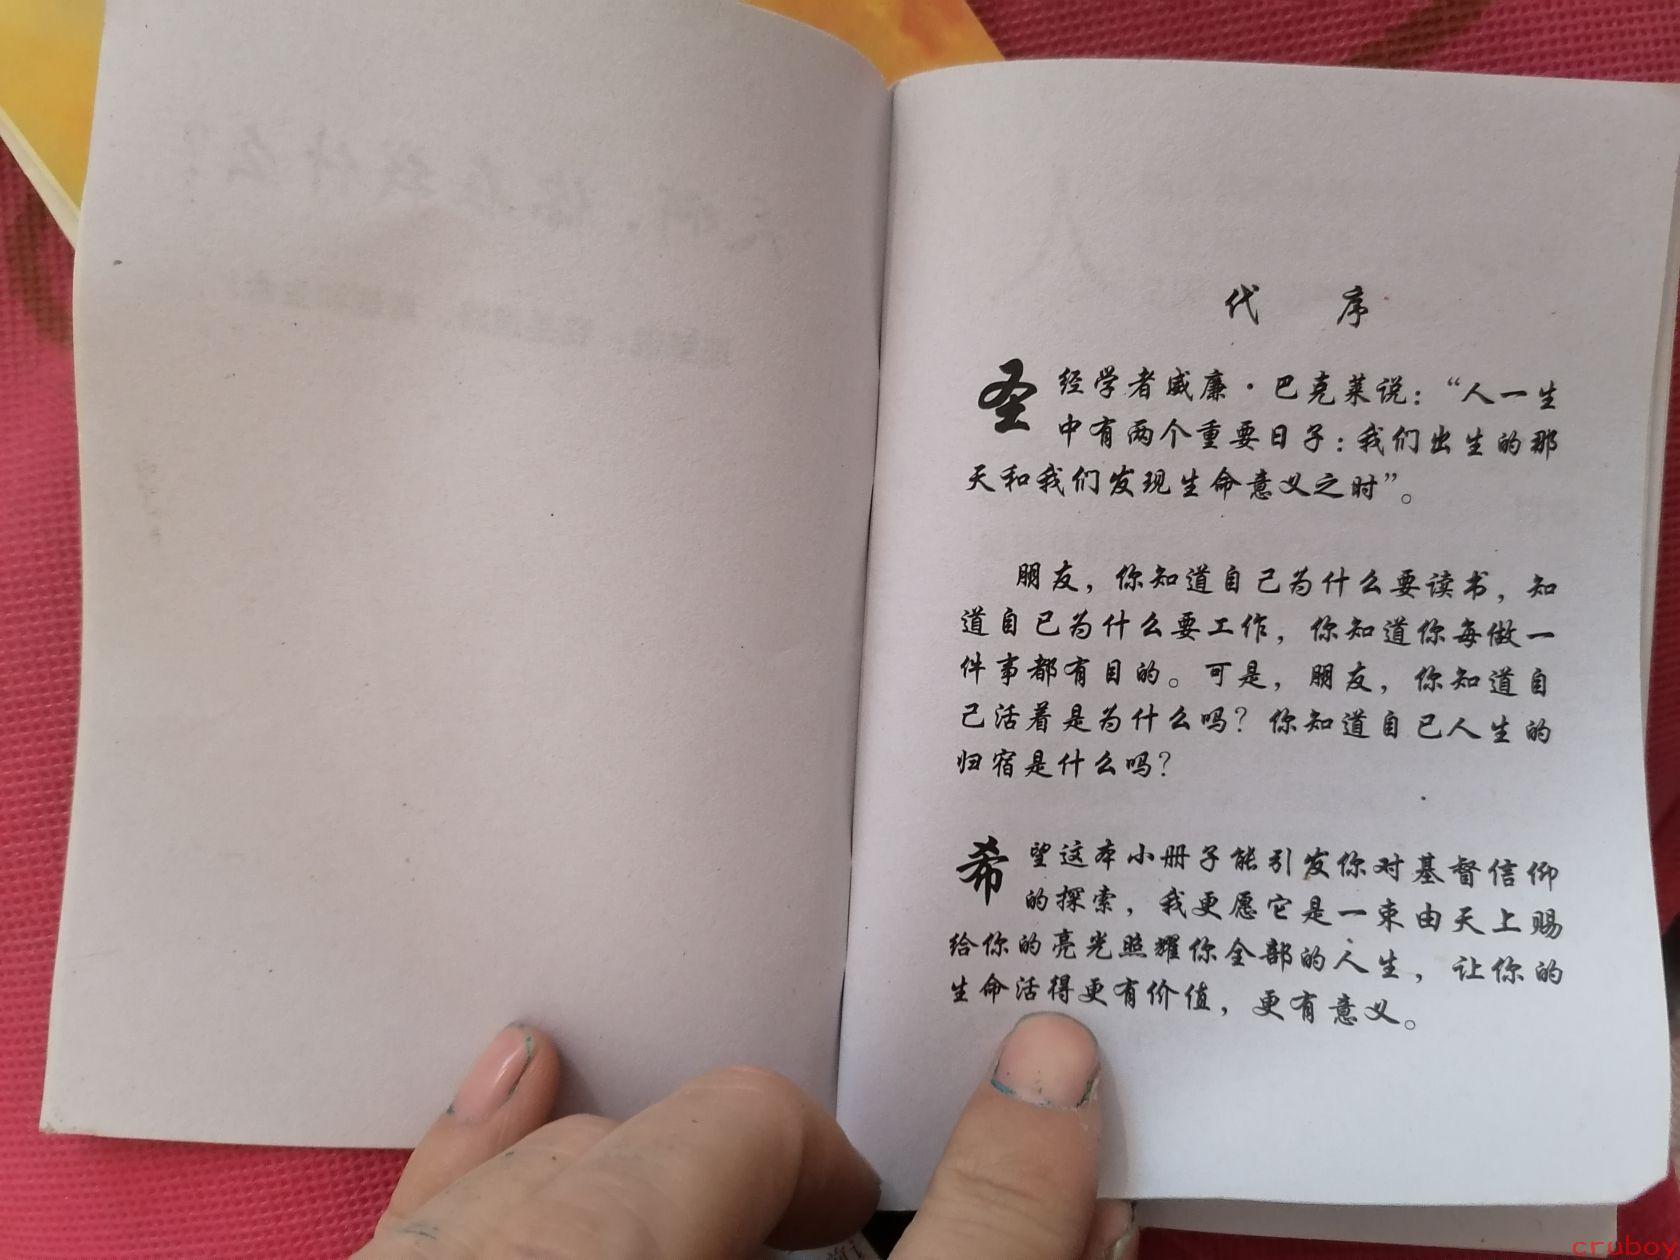 代 序
圣经学者威廉·巴克莱说：“人一生
中有两个重要日子：我们出生的那
天和我们发现生命意义之时”。
朋友，你知道自己为什么要读书，知
道自己为什么要工作，你知道你每做一
件事都有目的。可是，朋友，你知道自
己活着是为什么吗？你知道自己人生的
归宿是什么吗？
希望这本小册子能引发你对基督信仰
的探索，我更愿它是一束由天上赐
给你的亮光照耀你全部的人生，让你的
生命活得更有价值，更有意义。
cruboy